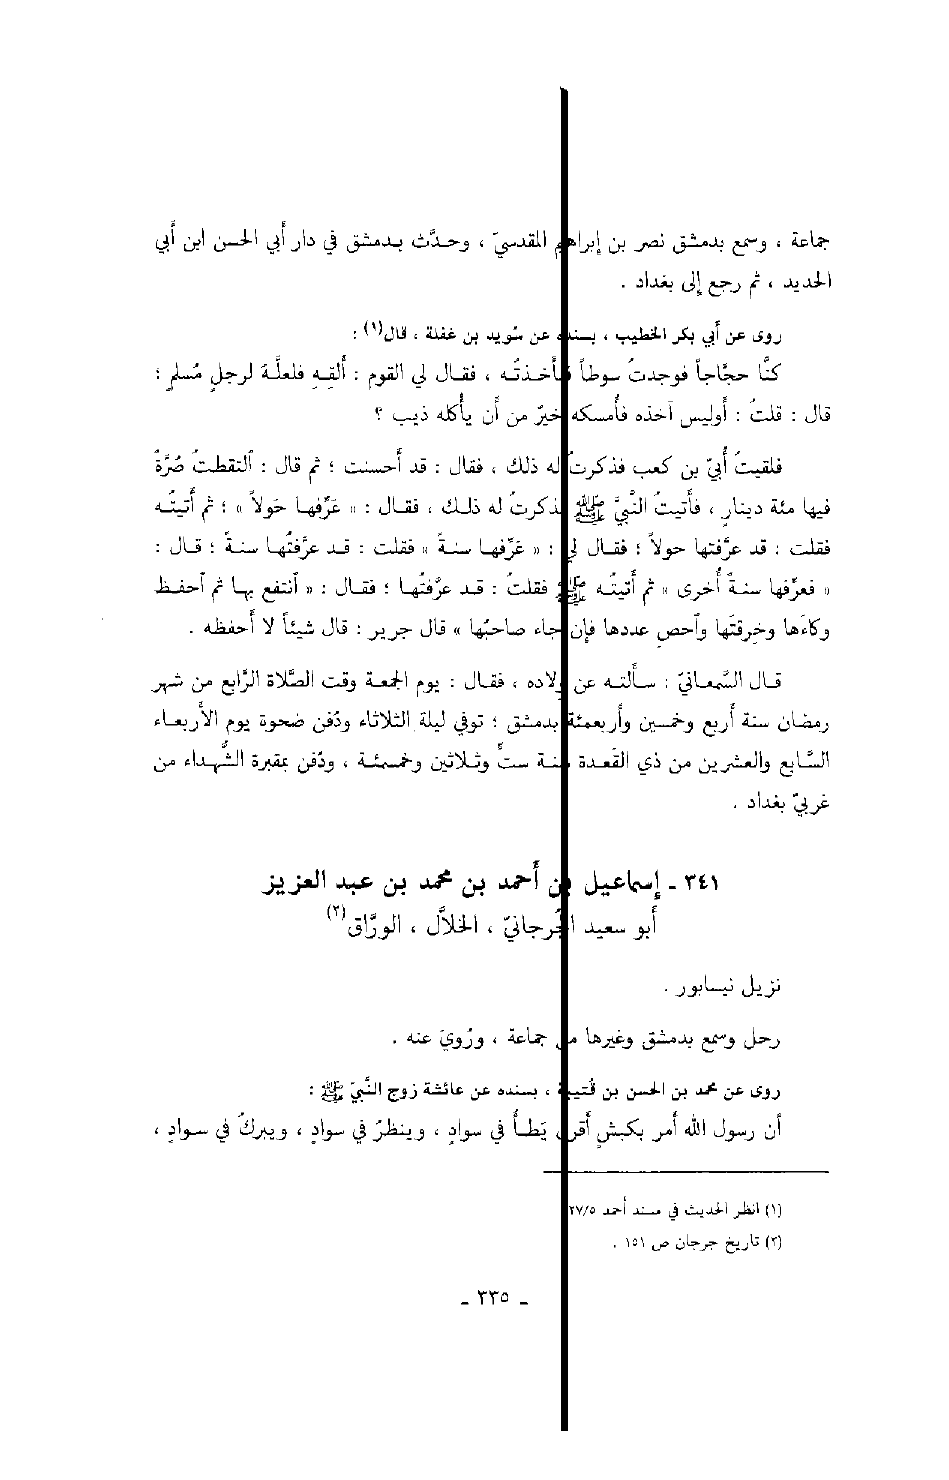 جماعة ، وسمع بدمشق نصر بن إبراهيم المقدسيّ ، وحدَّث بدمشق في دار أبي الحسن ابن أبي
الحديد ، ثم رجع إلى بغداد .
روى عن أبي بكر الخطيب ، بسنده عن سُويد بن غفلة ، قال(١) :
كنَّا حجَّاجاً فوجدتُ سوطاً فأخذتُه ، فقال لي القوم : أَلقِهِ فلعلَّه لرجلٍ مُسلمٍ ؛
قال : قلتُ : أَوليس آخذه فأُمسكه خيرٌ من أن يأكله ذيب ؟
فلقيتُ أُبيَّ بن كعب فذكرتُ له ذلك ، فقال : قد أَحسنت ؛ ثم قال : ٱلتقطتُ صُرَّةً
فيها مئة دينارٍ ، فأتيتُ النَّبيَّ ﷺ فذكرتُ له ذلك ، فقال : « عَرِّفها حَولاً » ؛ ثم أتيتُه
فقلت : قد عرَّفتها حولاً ؛ فقال لي : « عَرِّفها سنةً » فقلت : قد عرَّفتُها سنةً ؛ قال :
« فعرِّفها سنةً أُخرى » ثم أتيتُه ﷺ فقلتُ : قد عرَّفتُها ؛ فقال : « ٱنتفع بها ثم ٱحفظ
وكاءَها وخِرقتَها وٱحصِ عددها فإن جاء صاحبُها » قال جرير : قال شيئاً لا أحفظه .
قال السَّمعانيّ : سألته عن ولاده ، فقال : يوم الجمعة وقت الصَّلاة الرَّابع من شهر
رمضان سنة أربع وخمسين وأربعمئة بدمشق ؛ توفي ليلة الثلاثاء ودُفن ضحوة يوم الأربعاء
السَّابع والعشرين من ذي القَعدة سنة ستٍّ وثلاثين وخمسمئة ، ودُفن بمقبرة الشُّهداء من
غربيّ بغداد .
٣٤١ - إسماعيل بن أَحمد بن محمد بن عبد العزيز
أبو سعيد الجُرجانيّ ، الخلاَّل ، الورَّاق(٢)
نزيل نيسابور .
رحل وسمع بدمشق وغيرها من جماعة ، ورُويَ عنه .
روى عن محمد بن الحسن بن قُتيبة ، بسنده عن عائشة زوج النَّبيّ ﷺ :
أن رسول الله أمر بكبشٍ أقرن يَطأُ في سوادٍ ، وينظرُ في سوادٍ ، ويبركُ في سوادٍ ،
(١) انظر الحديث في مسند أحمد ٢٧/٥
(٢) تاريخ جرجان ص ١٥١ .
- ٣٣٥ -